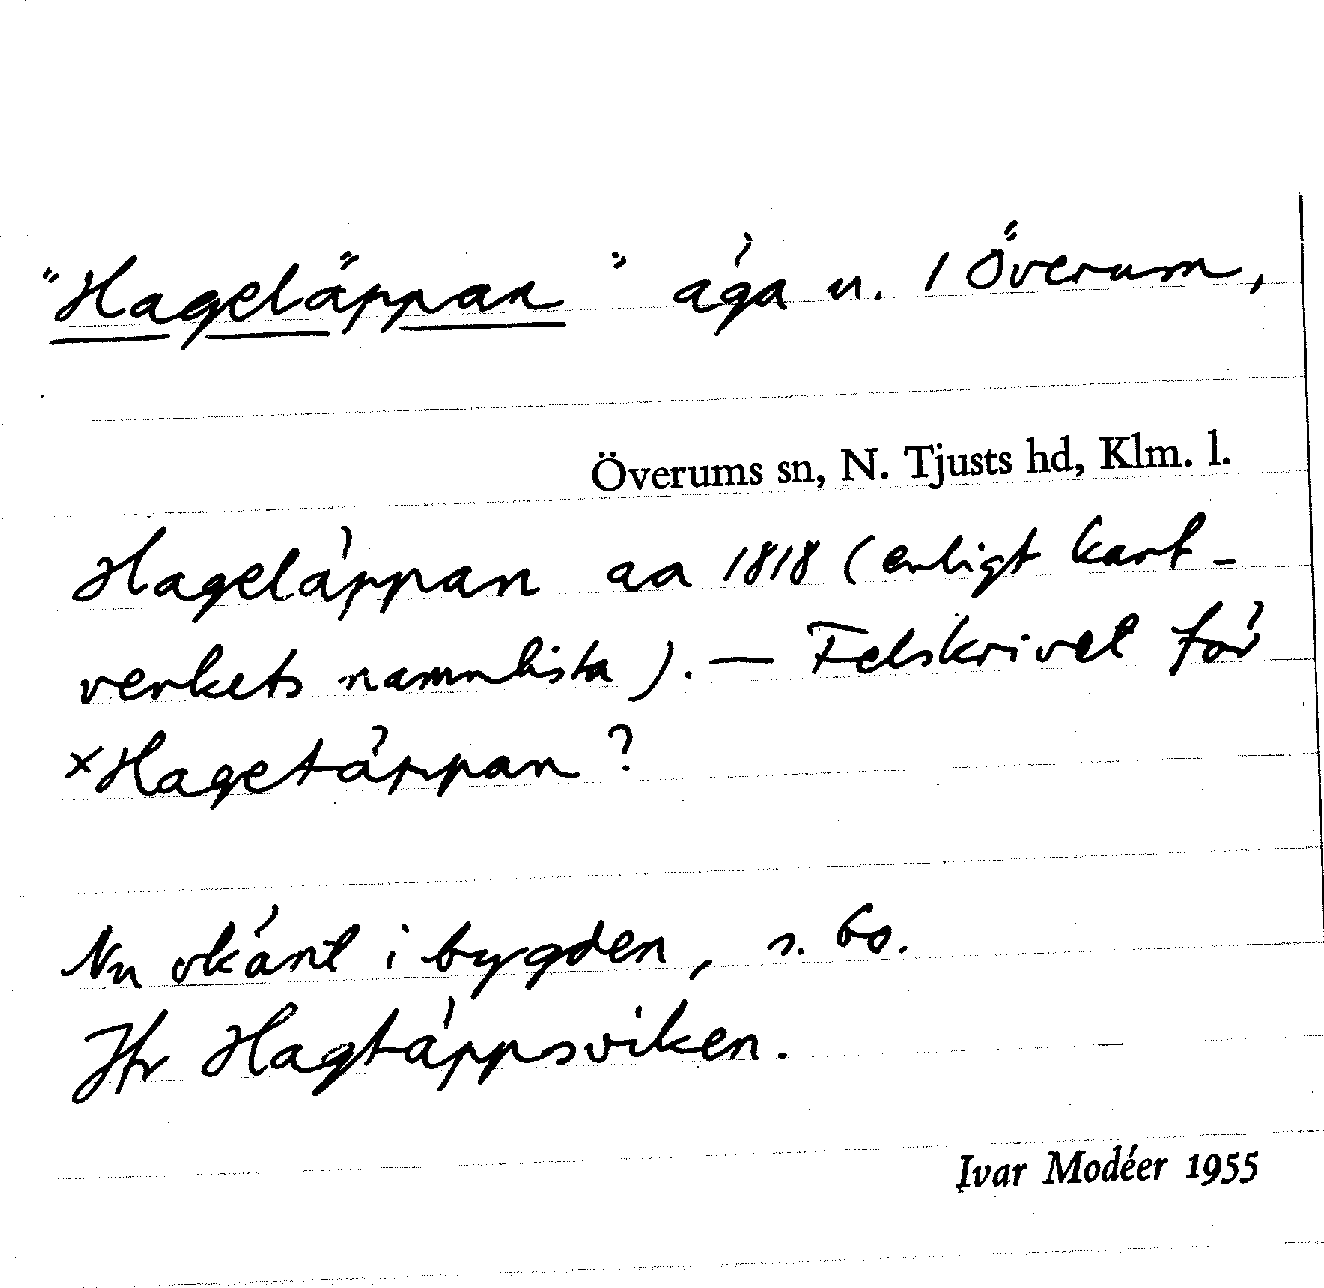 "Hageläppan" äga u. 1 Överum,
Överums sn, N. Tjusts hd, Klm. l.
Hageläppan aa 1818 (enligt kart-
verkets namnlista). — Felskrivet för
×Hagetäppan?
Nu okänt i bygden, s. bo.
Jfr Hagtäppsviken.
Ivar Modéer 1955